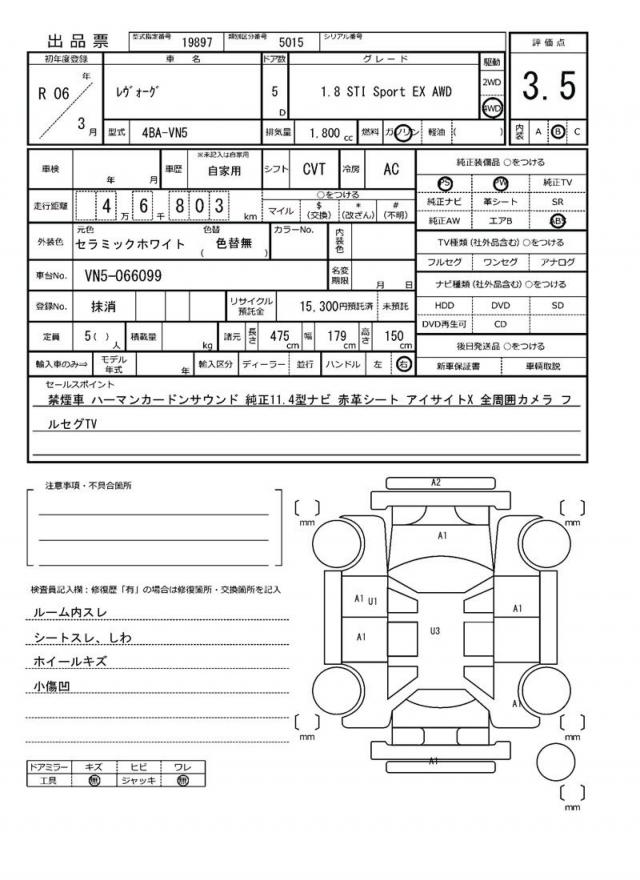 出品票 型式指定番号 19897 類別区分番号 5015 シリアル番号
初年度登録 車名 ドア数 グレード 駆動 評価点
R 06 年 3 月 レヴォーグ 5 D 1.8 STI Sport EX AWD 2WD 4WD 3.5
型式 4BA-VN5 排気量 1.800 cc 燃料 ガソリン 軽油 ( ) 内装 A B C
車検 年 月 車歴 ※未記入は自家用 自家用 シフト CVT 冷房 AC 純正装備品 ○をつける
PS PW 純正TV
走行距離 4 万 6 千 8 0 3 km ○をつける
マイル $ (交換) * (改ざん) # (不明)
純正ナビ 革シート SR
純正AW エアB ABS
外装色 元色 セラミックホワイト 色替 ( 色替無 ) カラーNo. 内装色
TV種類 (社外品含む) ○をつける
フルセグ ワンセグ アナログ
車台No. VN5-066099 名変期限 月 日
ナビ種類 (社外品含む) ○をつける
登録No. 抹消 リサイクル預託金 15,300円預託済 未預託
HDD DVD SD
DVD再生可 CD
定員 5 ( ) 人 積載量 kg 諸元 長さ 475 cm 幅 179 cm 高さ 150 cm
後日発送品 ○をつける
輸入車のみ⇒ モデル年式 年 輸入区分 ディーラー 並行 ハンドル 左 右
新車保証書 車輌取説
セールスポイント
禁煙車 ハーマンカードンサウンド 純正11.4型ナビ 赤革シート アイサイトX 全周囲カメラ フ
ルセグTV
注意事項・不具合箇所
検査員記入欄：修復歴「有」の場合は修復箇所・交換箇所を記入
ルーム内スレ
シートスレ、しわ
ホイールキズ
小傷凹
ドアミラー キズ ヒビ ワレ
工具 無 ジャッキ 無
A2
[ ] mm [ ] mm
A1
A1 U1 A1
A1 U3
A1
[ ] mm [ ] mm
A1
[ ] mm